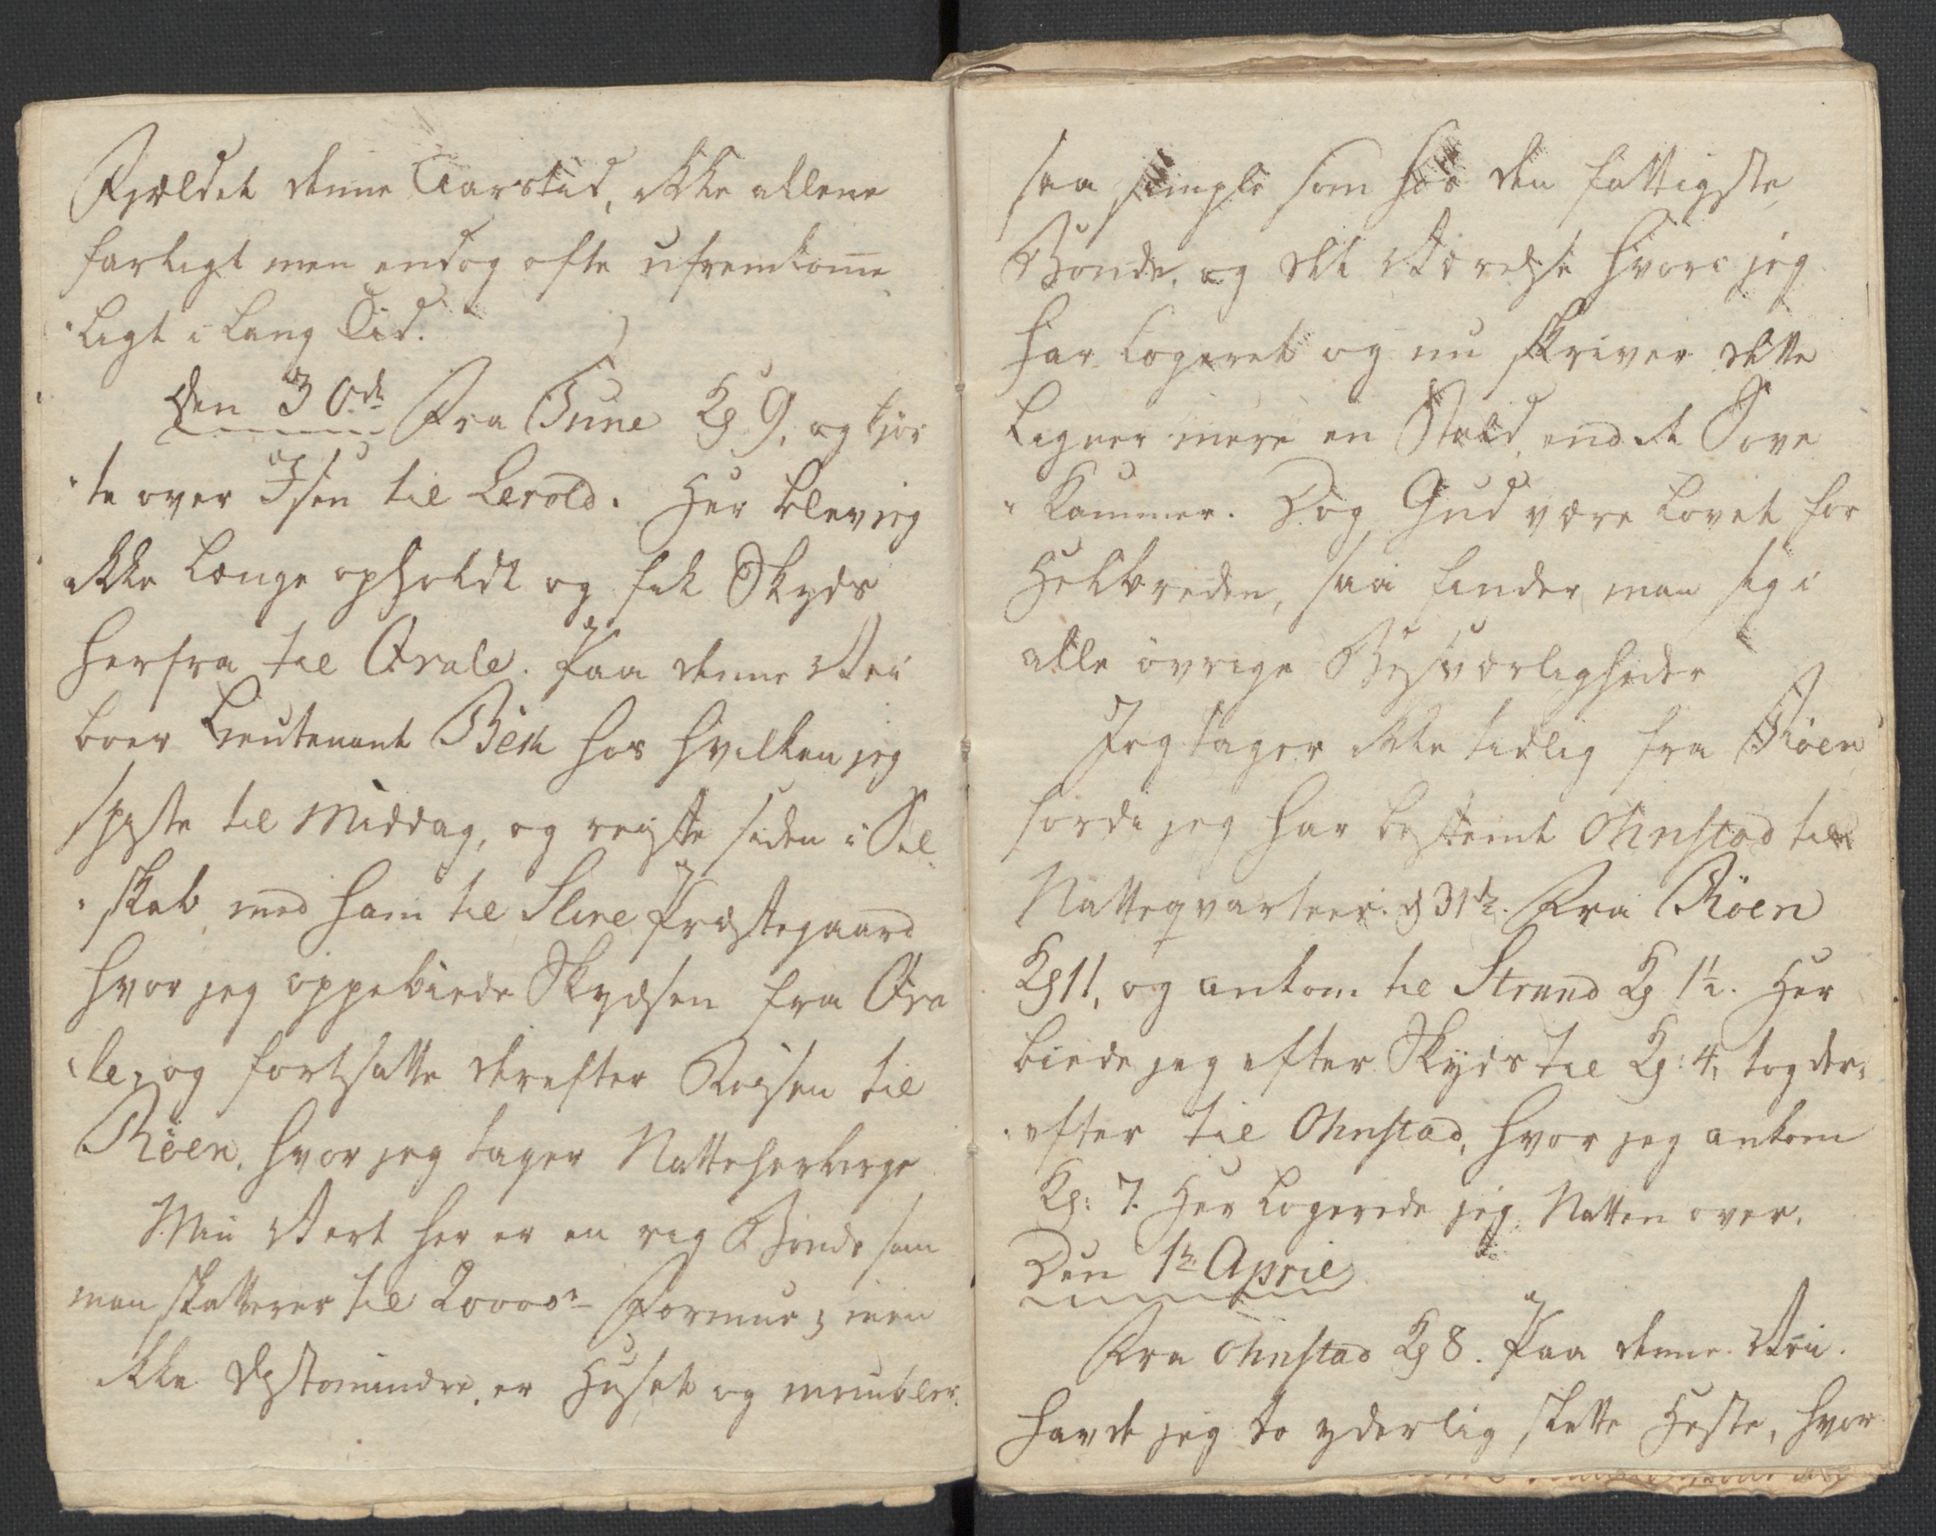 Fjældet denne Aarstid, ikke allene
farligt men endog ofte ufremkomme
-ligt i lang Tid.
Den 30de Fra Tune Kl 9, og kjør
-te over Isen til Lerold. Her blev jeg
ikke længe opholdt og fik Skyds
herfra til Qvale. Paa denne Vei
boer Lieutenant Bek hos hvilken jeg
spiste til Middag, og reiste siden i Sel
-skab med ham til Slire Præstegaard
hvor jeg oppebiede Skydsen fra Qva
-le, og fortsatte derefter Reisen til
Röen, hvor jeg tager Natteherberge
Min Vert her er en rig Bonde som
man skatterer til 20000r Formue; men
ikke destomindre, er Huset og meubler
saa simple som hos den fattigste
Bonde, og det Værelse hvori jeg
har logeret og nu skriver dette
ligner mere en Stald end et Sove
-Kammer. Dog Gud være lovet for
Helbreden, saa finder man sig i
alle övrige Besværligheder
Jeg tager ikke tidlig fra Röen
fordi jeg har bestemt Ohnstad til
Natteqvarteer. d 31te. Fra Röen
Kl 11, og ankom til Strand Kl 1½. Her
biede jeg efter Skyds til Kl: 4, tog der-
-efter til Ohnstad, hvor jeg ankom
Kl: 7. Her logerede jeg Natten over.
Den 1te April
Fra Ohnstad Kl 8. Paa denne Vei
havde jeg to yderlig slette Heste, hvor